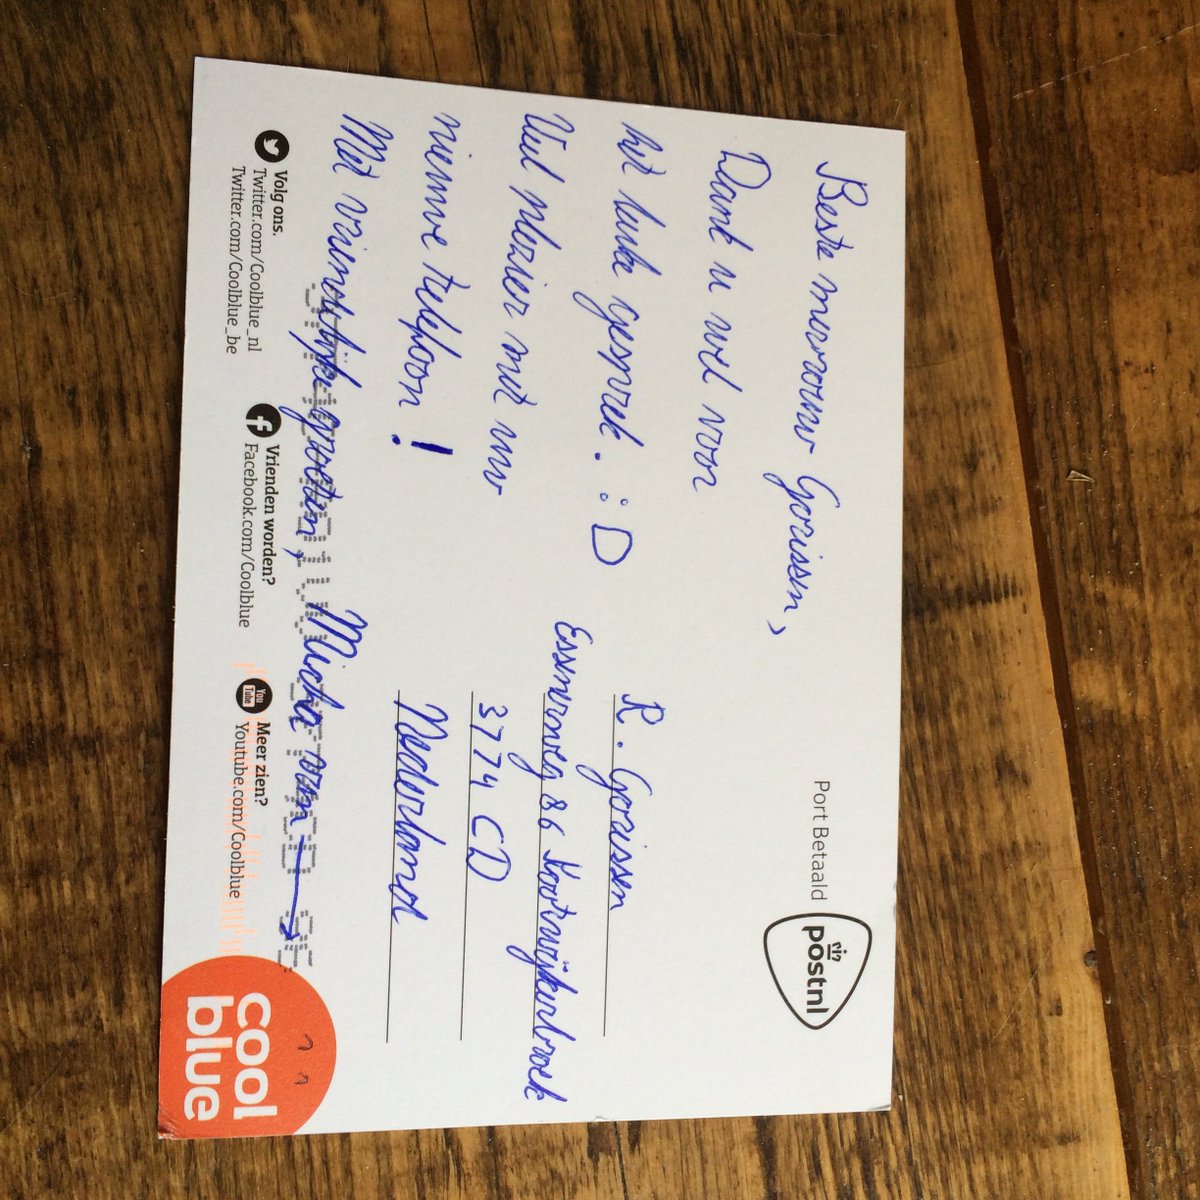 Beste mevrouw Gorissen,
Dank u wel voor
het leuke gesprek. :D
Veel plezier met uw
nieuwe telefoon!
Met vriendelijke groeten, Micha van →
Port Betaald
postnl
R. Gorissen
Essenerweg 86 Kootwijkerbroek
3774 CD
Nederland
Volg ons.
Twitter.com/Coolblue_nl
Twitter.com/Coolblue_be
Vrienden worden?
Facebook.com/Coolblue
You Tube
Meer zien?
Youtube.com/Coolblue
cool
blue